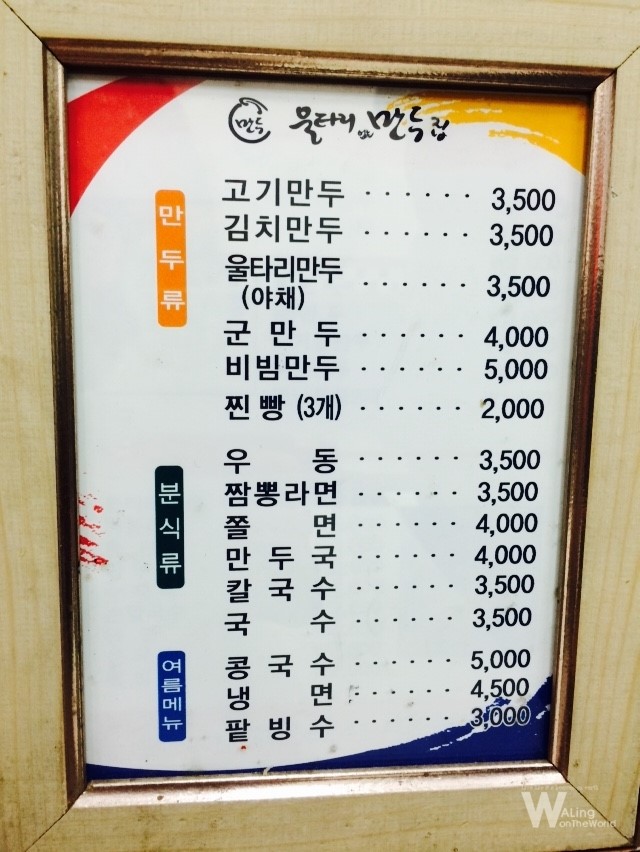 만두 울타리없는만두집
만두류
고기만두 · · · · · · 3,500
김치만두 · · · · · · 3,500
울타리만두 · · · · · · 3,500
(야채)
군만두 · · · · · · 4,000
비빔만두 · · · · · · 5,000
찐빵 (3개) · · · · · · 2,000
분식류
우동 · · · · · · 3,500
짬뽕라면 · · · · · · 3,500
쫄면 · · · · · · 4,000
만두국 · · · · · · 4,000
칼국수 · · · · · · 3,500
국수 · · · · · · 3,500
여름메뉴
콩국수 · · · · · · 5,000
냉면 · · · · · · 4,500
팥빙수 · · · · · · 3,000
WALing
onTheWorld